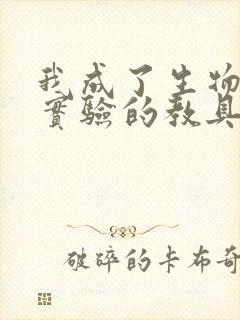 我成了生物
實驗的教具
破碎的卡布奇